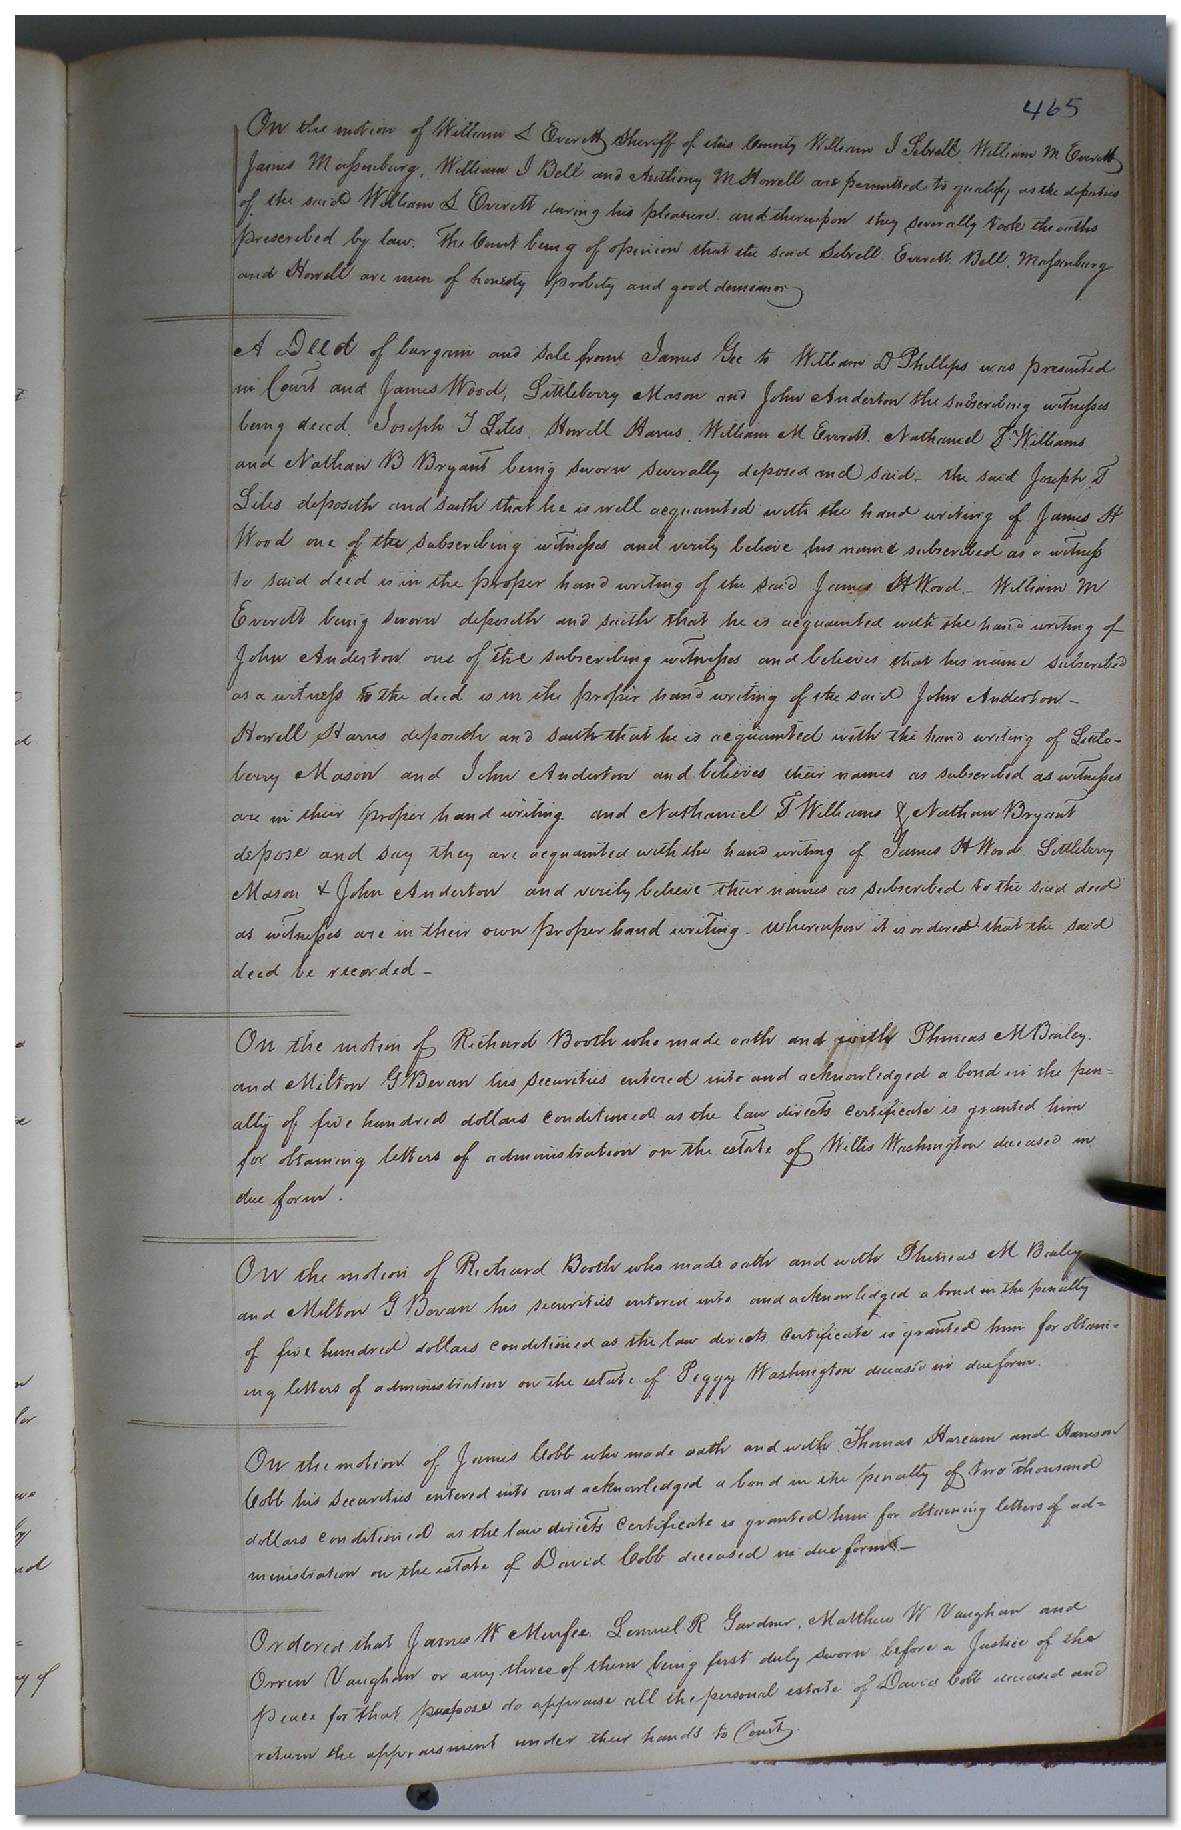 465
On the motion of William L Everett Sheriff of this County William I Sebrell, William M Everett
James Massenburg, William I Bell and Anthony M Howell are permitted to qualify as the deputies
of the said William L Everett during his pleasure. and thereupon they severally took the oaths
prescribed by law. The Court being of opinion that the said Sebrell. Everett. Bell. Massenburg
and Howell are men of honesty probity and good demeanor
A Deed of bargain and sale from James Gee to William D Phillips was presented
in Court and James Wood, Littleberry Mason and John Anderton the subscribing witnesses
being decd. Joseph T Liles. Howell Harris. William M Everett. Nathaniel T Williams
and Nathan B Bryant being sworn severally deposed and said. the said Joseph T
Liles deposeth and saith that he is well acquainted with the hand writing of James H
Wood one of the subscribing witnesses and verily believe his name subscribed as a witness
to said deed is in the proper hand writing of the said James H Wood. William M
Everett being sworn deposeth and saith that he is acquainted with the hand writing of
John Anderton one of the subscribing witnesses and believes that his name subscribed
as a witness to the deed is in the proper hand writing of the said John Anderton -
Howell Harris deposeth and saith that he is acquainted with the hand writing of Little-
berry Mason and John Anderton and believes their names as subscribed as witnesses
are in their proper hand writing and Nathaniel T Williams & Nathan Bryant
depose and say they are acquainted with the hand writing of James H Wood. Littleberry
Mason & John Anderton and verily believe their names as subscribed to the said deed
as witnesses are in their own proper hand writing. Whereupon it is ordered that the said
deed be recorded -
On the motion of Richard Booth who made oath and with Phineas M Bailey.
and Milton G Bevan his securities entered into and acknowledged a bond in the pen=
alty of five hundred dollars conditioned as the law directs certificate is granted him
for obtaining letters of administration on the estate of Willis Washington deceased in
due form.
On the motion of Richard Booth who made oath and with Phineas M Bailey
and Milton G Bevan his securities entered into and acknowledged a bond in the penalty
of five hundred dollars conditioned as the law directs certificate is granted him for obtain=
ing letters of administration on the estate of Peggy Washington deceased in due form.
On the motion of James Cobb who made oath and with Thomas and Harrison
Cobb his securities entered into and acknowledged a bond in the penalty of two thousand
dollars conditioned as the law directs certificate is granted him for obtaining letters of ad=
ministration on the estate of David Cobb deceased in due form -
Ordered that James W Murfee. Lemuel R Gardner. Matthew W Vaughan and
Orren Vaughan or any three of them being first duly sworn before a Justice of the
Peace for that purpose do appraise all the personal estate of David Cobb deceased and
return the appraisment under their hands to Court.